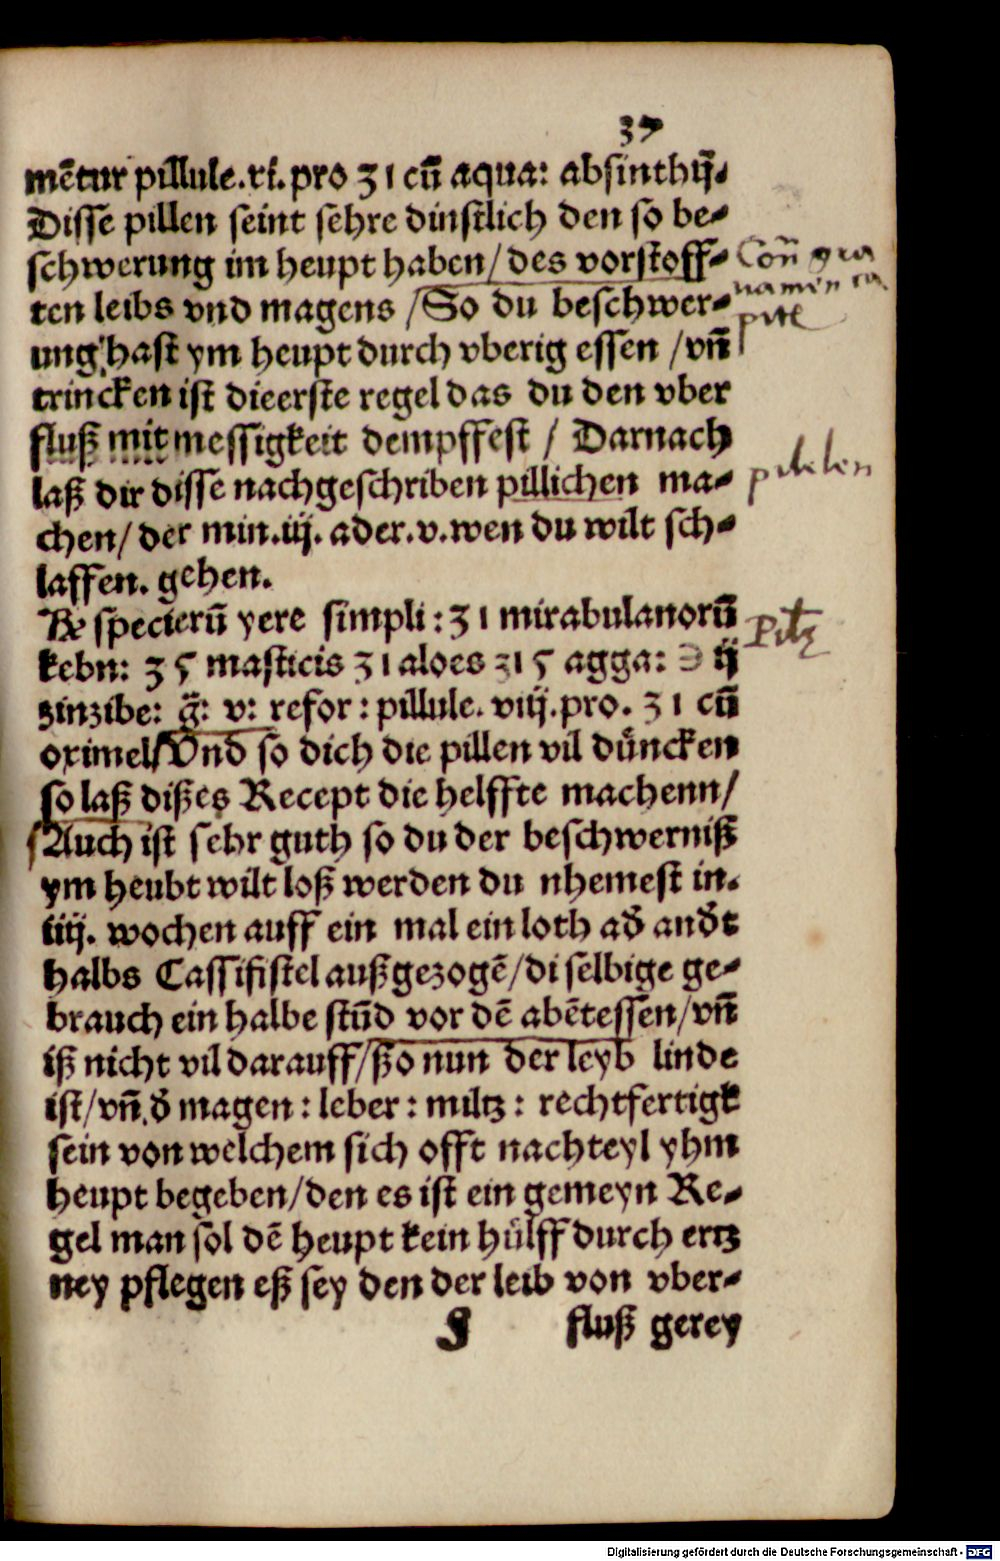 37
mētur pillule.xi. pro ʒ ı cū aqua: absinthij.
Disse pillen seint sehre dinstlich den so be⸗
schwerung im heupt haben/des vorstoff⸗
ten leibs vnd magens /So du beschwer⸗
ung hast ym heupt durch vberig essen /vn̄
trincken ist dieerste regel das du den vber
fluß mit messigkeit dempffest / Darnach
laß dir disse nachgeschriben pillichen ma⸗
chen/ der min.iij. ader.v.wen du wilt sch⸗
laffen. gehen.
℞ specierū yere simpli: ʒ ı mirabulanorū
kebn: ʒ ς masticis ʒ ı aloes ʒı ς agga: ℈ ij
zinzibe: g̈: v: refor: pillule. viij.pro. ʒ ı cū
oximel/Vnd so dich die pillen vil dûncken
so laß dißes Recept die helffte machenn/
Auch ist sehr guth so du der beschwerniß
ym heubt wilt loß werden du nhemest in.
iiij. wochen auff ein mal ein loth ad̄ and̄t
halbs Cassifistel außgezogē/di selbige ge⸗
brauch ein halbe stūd vor dē abētessen/vn̄
iß nicht vil darauff/ßo nun der leyb linde
ist/vn̄ d̄ magen: leber: miltz: rechtfertigk
sein von welchem sich offt nachteyl yhm
heupt begeben/den es ist ein gemeyn Re⸗
gel man sol dē heupt kein hûlff durch ertz
ney pflegen eß sey den der leib von vber⸗
J fluß gerey
pilulen
Digitalisierung gefördert durch die Deutsche Forschungsgemeinschaft - DFG